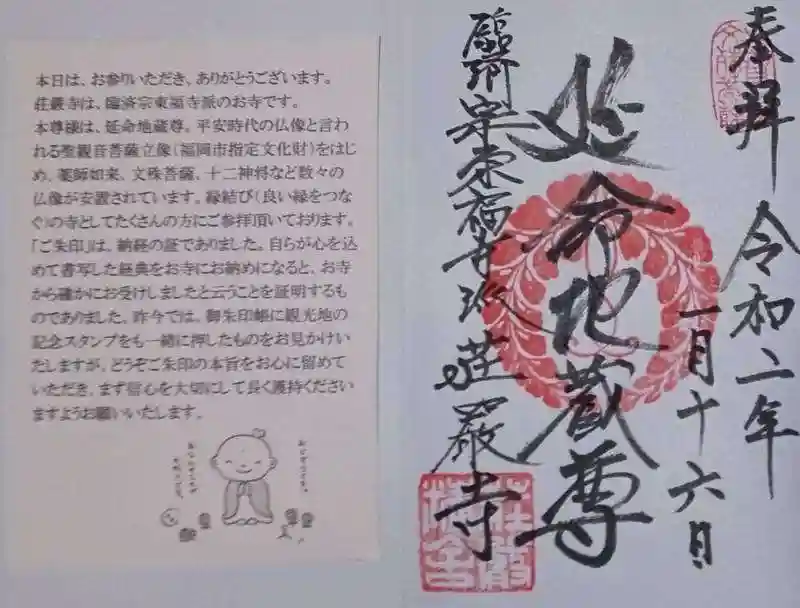 本日は、お参りいただき、ありがとうございます。
荘厳寺は、臨済宗東福寺派のお寺です。
本尊様は、延命地蔵尊。平安時代の仏像と言わ
れる聖観音菩薩立像(福岡市指定文化財)をはじ
め、薬師如来、文殊菩薩、十二神将など数々の
仏像が安置されています。縁結び(良い縁をつな
ぐ)の寺としてたくさんの方にご参拝頂いております。
「ご朱印」は、納経の証でありました。自らが心を込
めて書写した経典をお寺にお納めになると、お寺
から確かにお受けしましたと云うことを証明するも
のでありました。昨今では、御朱印帳に観光地の
記念スタンプをも一緒に押したものをお見かけい
たしますが、どうぞご朱印の本旨をお心に留めて
いただき、まず信心を大切にして長く護持ください
ますようお願いいたします。
奉拝
令和二年
一月十六日
延命地蔵尊
臨済宗東福寺派荘厳寺